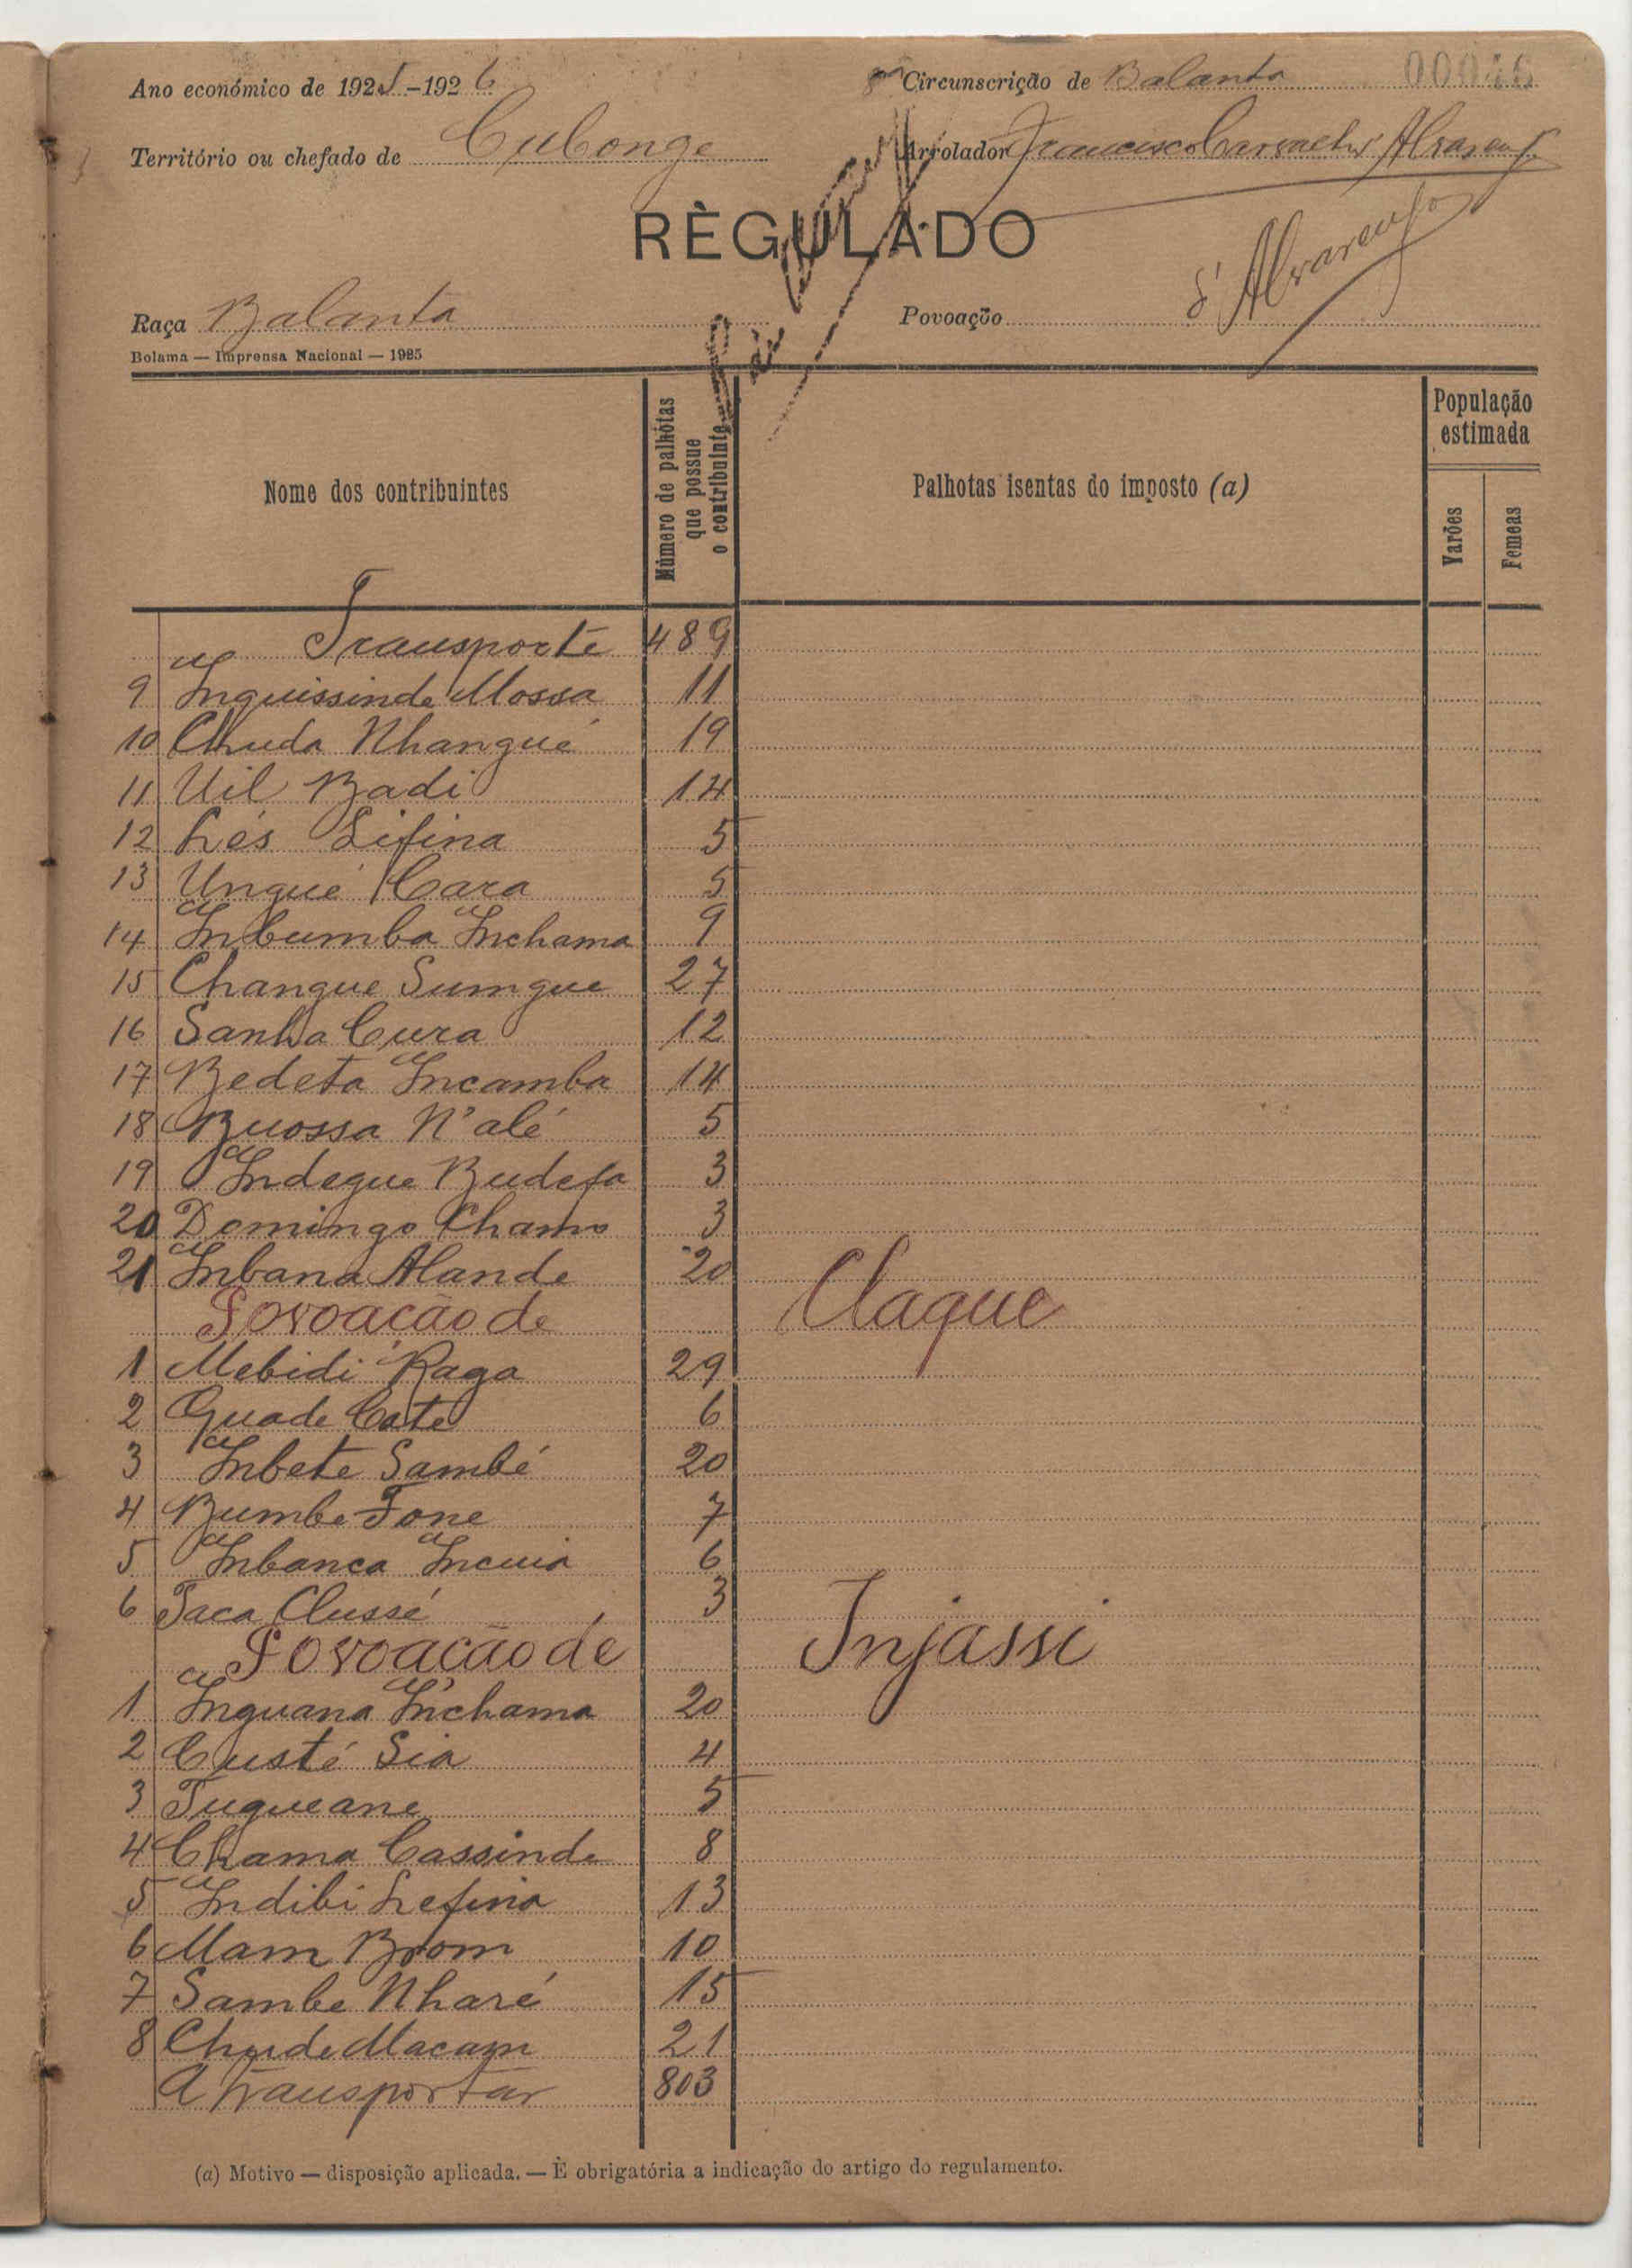 Ano económico de 1925-1926
Circunscrição de Balanta
00046
Território ou chefado de Cubonge
Arrolador Francisco Carvalho Alvarenga
RÈGULADO
Alvarenga
Raça Balanta
Povoação
Bolama — Imprensa Nacional — 1925
Nome dos contribuintes
Número de palhótas que possue o contribuinte
Palhotas isentas do imposto (a)
População estimada
Varões
Femeas
Transporte 489
9 Inquissinde Mossa 11
10 Chuda Nhangué 19
11 Uil Badi 14
12 Lés Sifina 5
13 Ungué Cara 5
14 Inbumba Inchama 9
15 Changue Sumgue 27
16 Sanha Cura 12
17 Bedeta Incamba 14
18 Buossa N'alé 5
19 Indegue Budefa 3
20 Domingo Chamo 3
21 Inbana Alande 20
Povoação de Claque
1 Mebidi Raga 29
2 Guade Cate 6
3 Inbete Sambé 20
4 Bumbe Fone 7
5 Inbanca Incuia 6
6 Taca Clussé 3
Povoação de Injassi
1 Inguana Inchama 20
2 Custé Sia 4
3 Tugueane 5
4 Chama Cassinde 8
5 Indibi Lefina 13
6 Mam Brom 10
7 Sambe Nharé 15
8 Chude Macam 21
A transportar 803
(a) Motivo — disposição aplicada. — È obrigatória a indicação do artigo do regulamento.